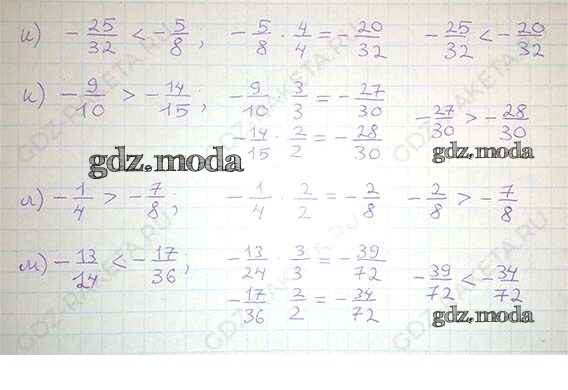 и) -25/32 < -5/8; -5/8 · 4/4 = -20/32 -25/32 < -20/32
к) -9/10 > -14/15; -9/10 · 3/3 = -27/30
-14/15 · 2/2 = -28/30 -27/30 > -28/30
gdz.moda gdz.moda
л) -1/4 > -7/8; -1/4 · 2/2 = -2/8 -2/8 > -7/8
м) -13/24 < -17/36; -13/24 · 3/3 = -39/72
-17/36 · 2/2 = -34/72 -39/72 < -34/72
gdz.moda
GDZ-RAKETA.RU